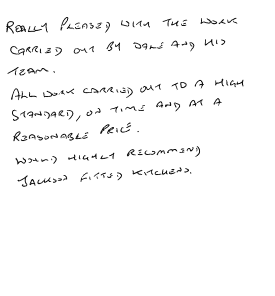 REALLY PLEASED WITH THE WORK
CARRIED OUT BY DALE AND HIS
TEAM.
ALL WORK CARRIED OUT TO A HIGH
STANDARD, ON TIME AND AT A
REASONABLE PRICE.
WOULD HIGHLY RECOMMEND
JACKSON FITTED KITCHENS.